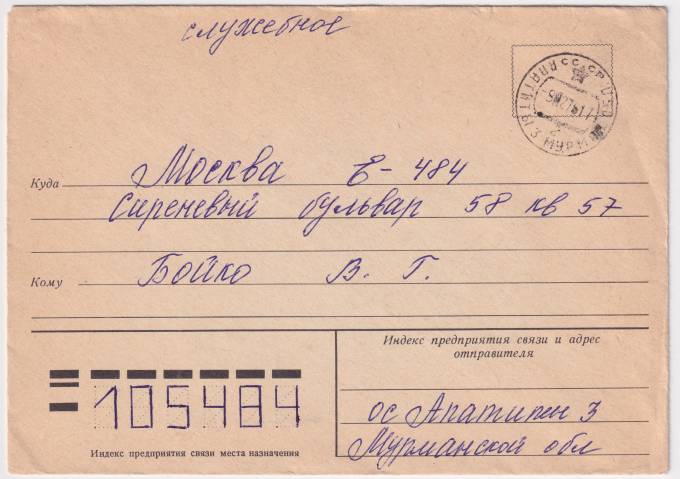 служебное
АПАТИТЫ 3 МУРМАН. ОБЛ. СССР
Куда Москва Е-484
Сиреневый бульвар 58 кв 57
Кому Бойко В. Г.
105484
Индекс предприятия связи места назначения
Индекс предприятия связи и адрес
отправителя
ос Апатиты 3
Мурманской обл